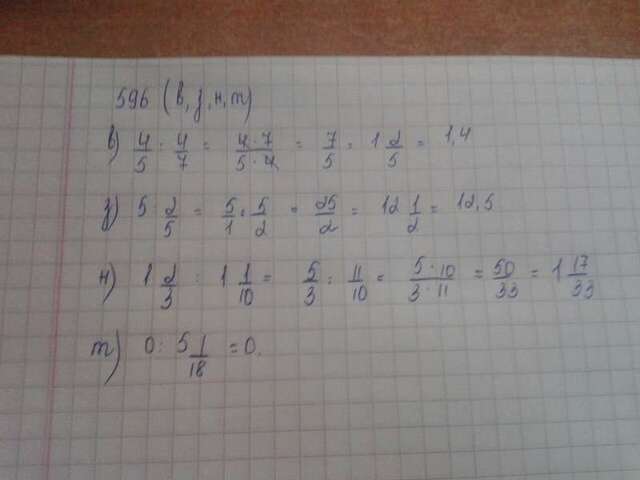 596 (в, з, н, т)
в) 4/5 : 4/7 = 4·7/5·4 = 7/5 = 1 2/5 = 1,4
з) 5 2/5 = 5/1 · 5/2 = 25/2 = 12 1/2 = 12,5
н) 1 2/3 : 1 1/10 = 5/3 : 11/10 = 5·10/3·11 = 50/33 = 1 17/33
т) 0 : 5 1/18 = 0.